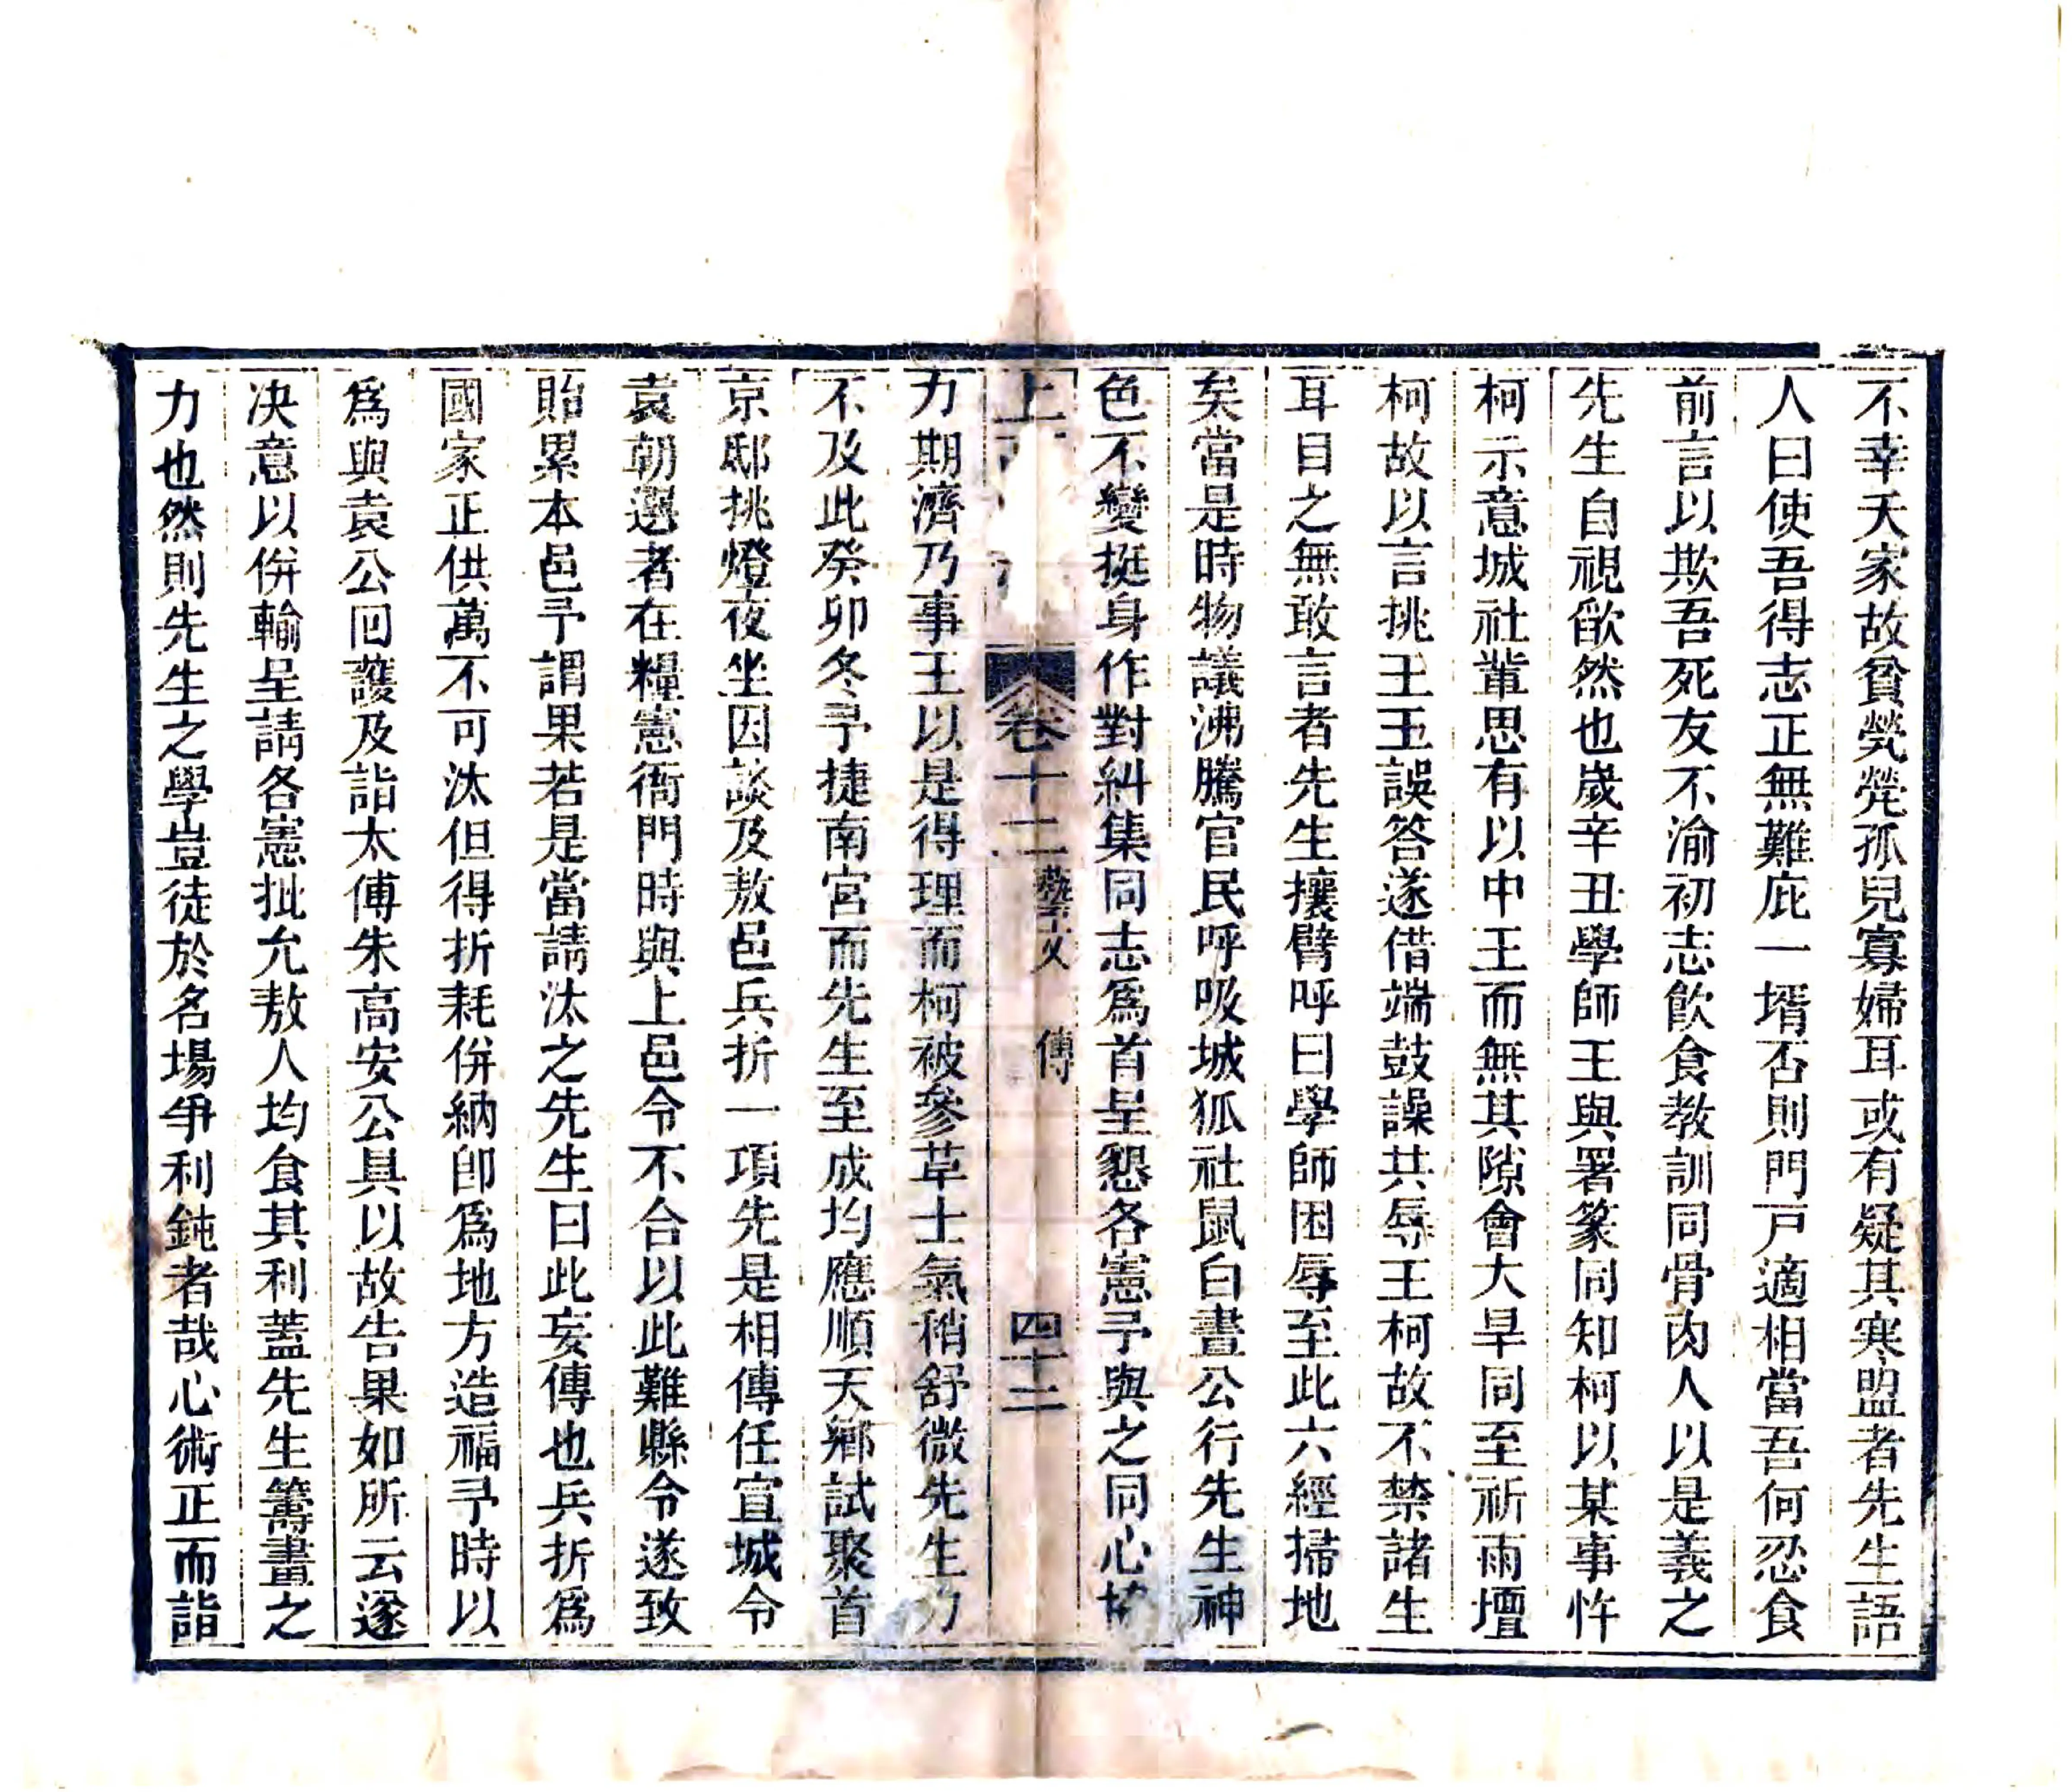 不幸夭家故貧煢煢孤兒寡婦耳或有疑其寒盟者先生語
人曰使吾得志正無難庇一壻否則門戸適相當吾何忍食
前言以欺吾死友不渝初志飮食教訓同骨肉人以是義之
先生自視歉然也歲辛丑學師王與署篆同知柯以某事忤
柯示意城社輩思有以中王而無其隙會大旱同至祈雨壇
柯故以言挑王王誤答遂借端鼓譟共辱王柯故不禁諸生
耳目之無敢言者先生攘臂呼曰學師困辱至此六經掃地
矣當是時物議沸騰官民呼吸城狐社鼠白晝公行先生神
色不變挺身作對糾集同志爲首呈懇各憲予與之同心協
上
卷十二 藝文 傳 四十二
力期濟乃事王以是得理而柯被參草士氣稍舒微先生力
不及此癸卯冬予捷南宮而先生至成均應順天鄕試聚首
京邸挑燈夜坐因談及敖邑兵折一項先是相傳任宣城令
袁朝選者在糧憲衙門時與上邑令不合以此難縣令遂致
貽累本邑予謂果若是當請汰之先生曰此妄傳也兵折爲
國家正供萬不可汰但得折耗併納卽爲地方造福予時以
爲與袁公囘護及詣太傅朱高安公具以故告果如所云遂
决意以併輸呈請各憲批允敖人均食其利蓋先生籌畫之
力也然則先生之學豈徒於名場爭利鈍者哉心術正而詣